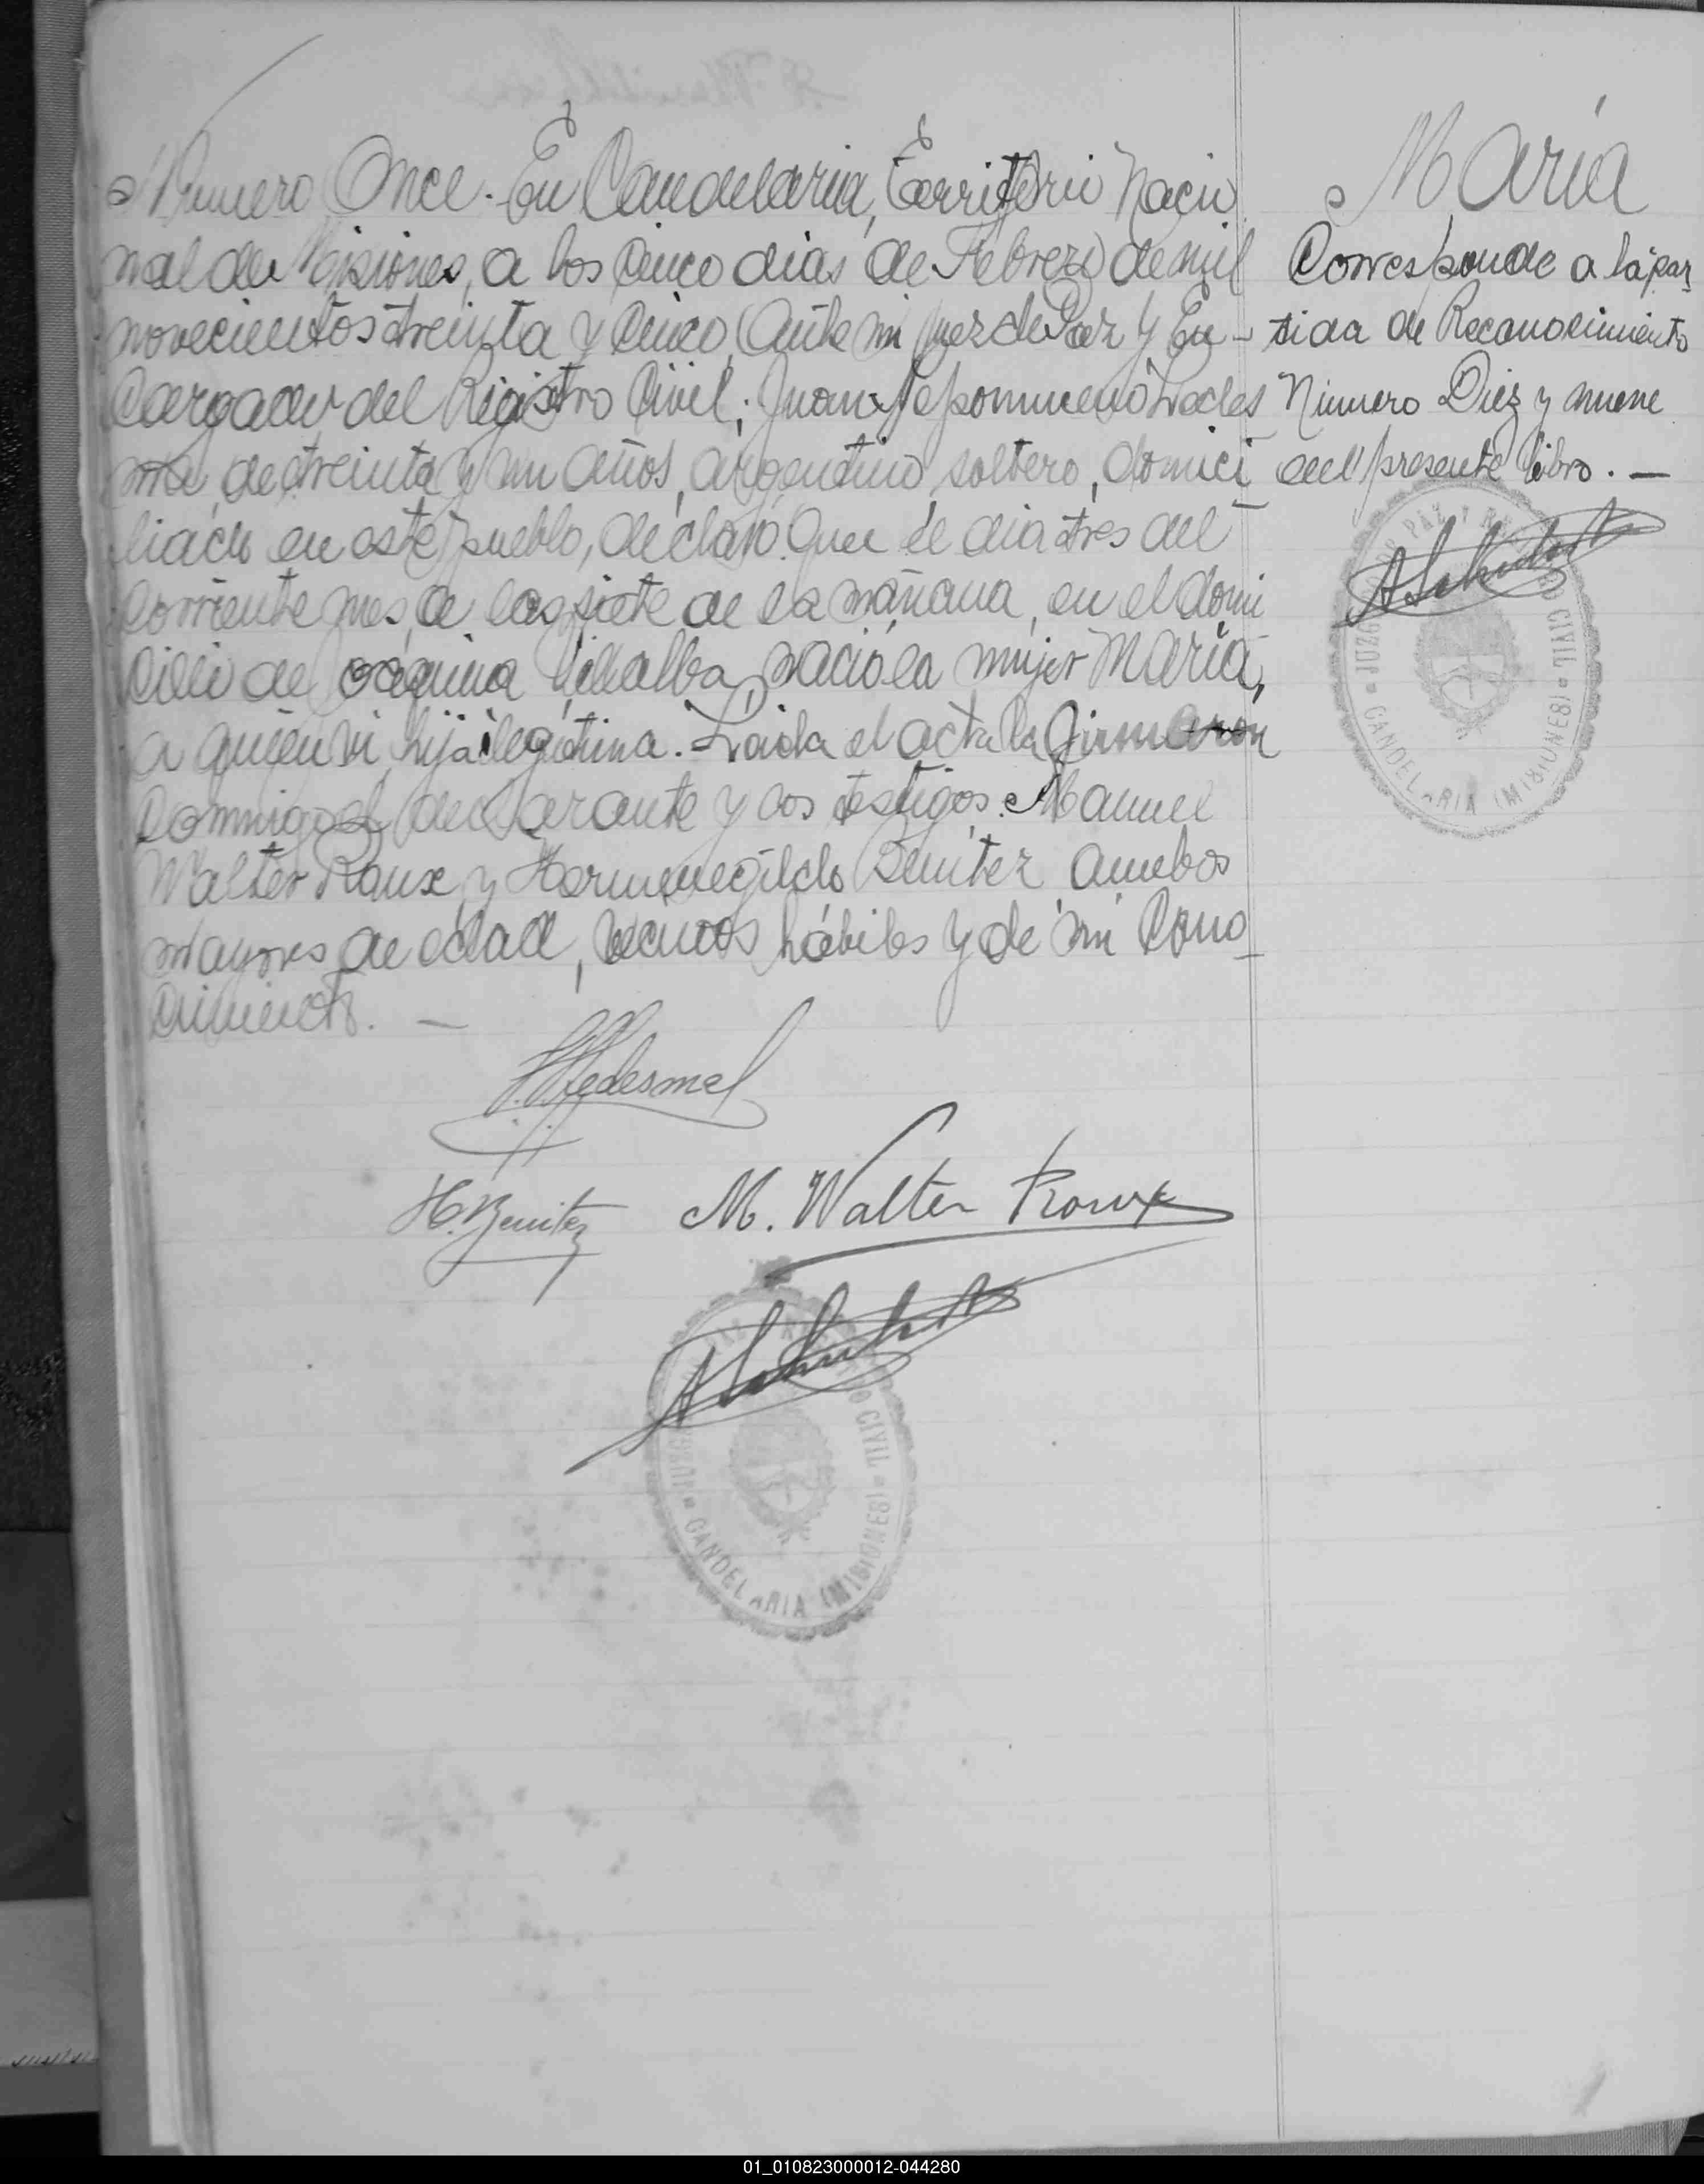 Numero Once. En Candelaria, Territorio Nacio
nal de Misiones, a los cinco dias de Febrero de mil
novecientos treinta y cinco, ante mi Juez de Paz y En-
cargado del Registro Civil; Juan Nepomuceno Ledes
ma, de treinta y un años, argentino soltero, domici
liado en este pueblo, declaró: Que el dia tres del
corriente mes, a las siete de la mañana, en el domi
cilio de Villalba, nació la mujer Maria,
a quien vi, hija ilegitima. Leida el acta la firmaron
conmigo el declarante y los testigos: Manuel
Walter Roux y Hermenegildo Benitez, ambos
mayores de edad, vecinos hábiles y de mi cono
cimiento. —
Ledesma
H. Benitez M. Walter Roux
CIVIL
CANDELARIA (MISIONES)
Maria
Corresponde a la par
tida de Reconocimiento
Numero Diez y nueve
del presente libro. —
PAZ Y
CIVIL
CANDELARIA (MISIONES)
01_010823000012-044280